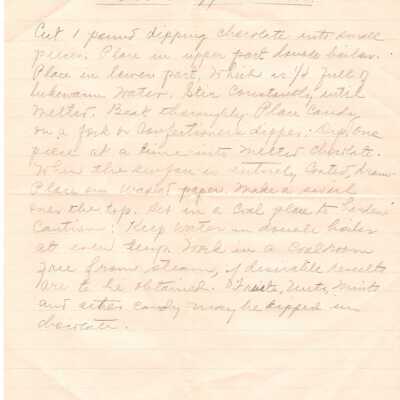 Cut 1 pound dipping chocolate into small
pieces. Place in upper part double boiler.
Place in lower part, which is 1/2 full of
lukewarm water. Stir constantly until
melted. Beat thoroughly. Place candy
on a fork or confectioners dipper. Dip one
piece at a time into melted chocolate.
When the surface is entirely coated, draw
Place on waxed paper. Make a swirl
over the top. Set in a cool place to harden
Caution: Keep water in double boiler
at even temp. Work in a cool room
free from steam, if desirable results
are to be obtained. Fruits, Nuts, Mints
and other candy may be dipped in
chocolate.